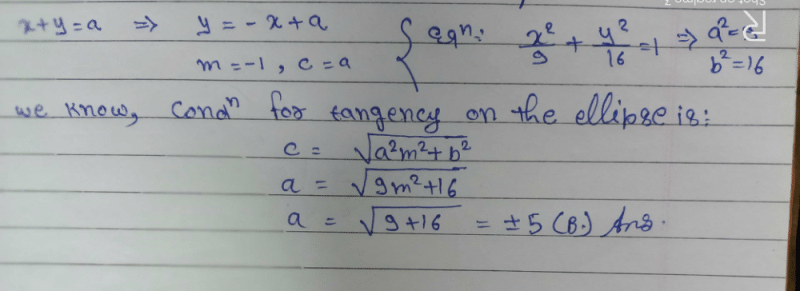 x+y=a ⇒ y = -x+a { eqⁿ: x²/9 + y²/16 = 1 ⇒ a²=
m = -1, c = a b²=16
we know, Condⁿ for tangency on the ellipse is:
c = √a²m²+b²
a = √9m²+16
a = √9+16 = ±5 (B.) Ans.